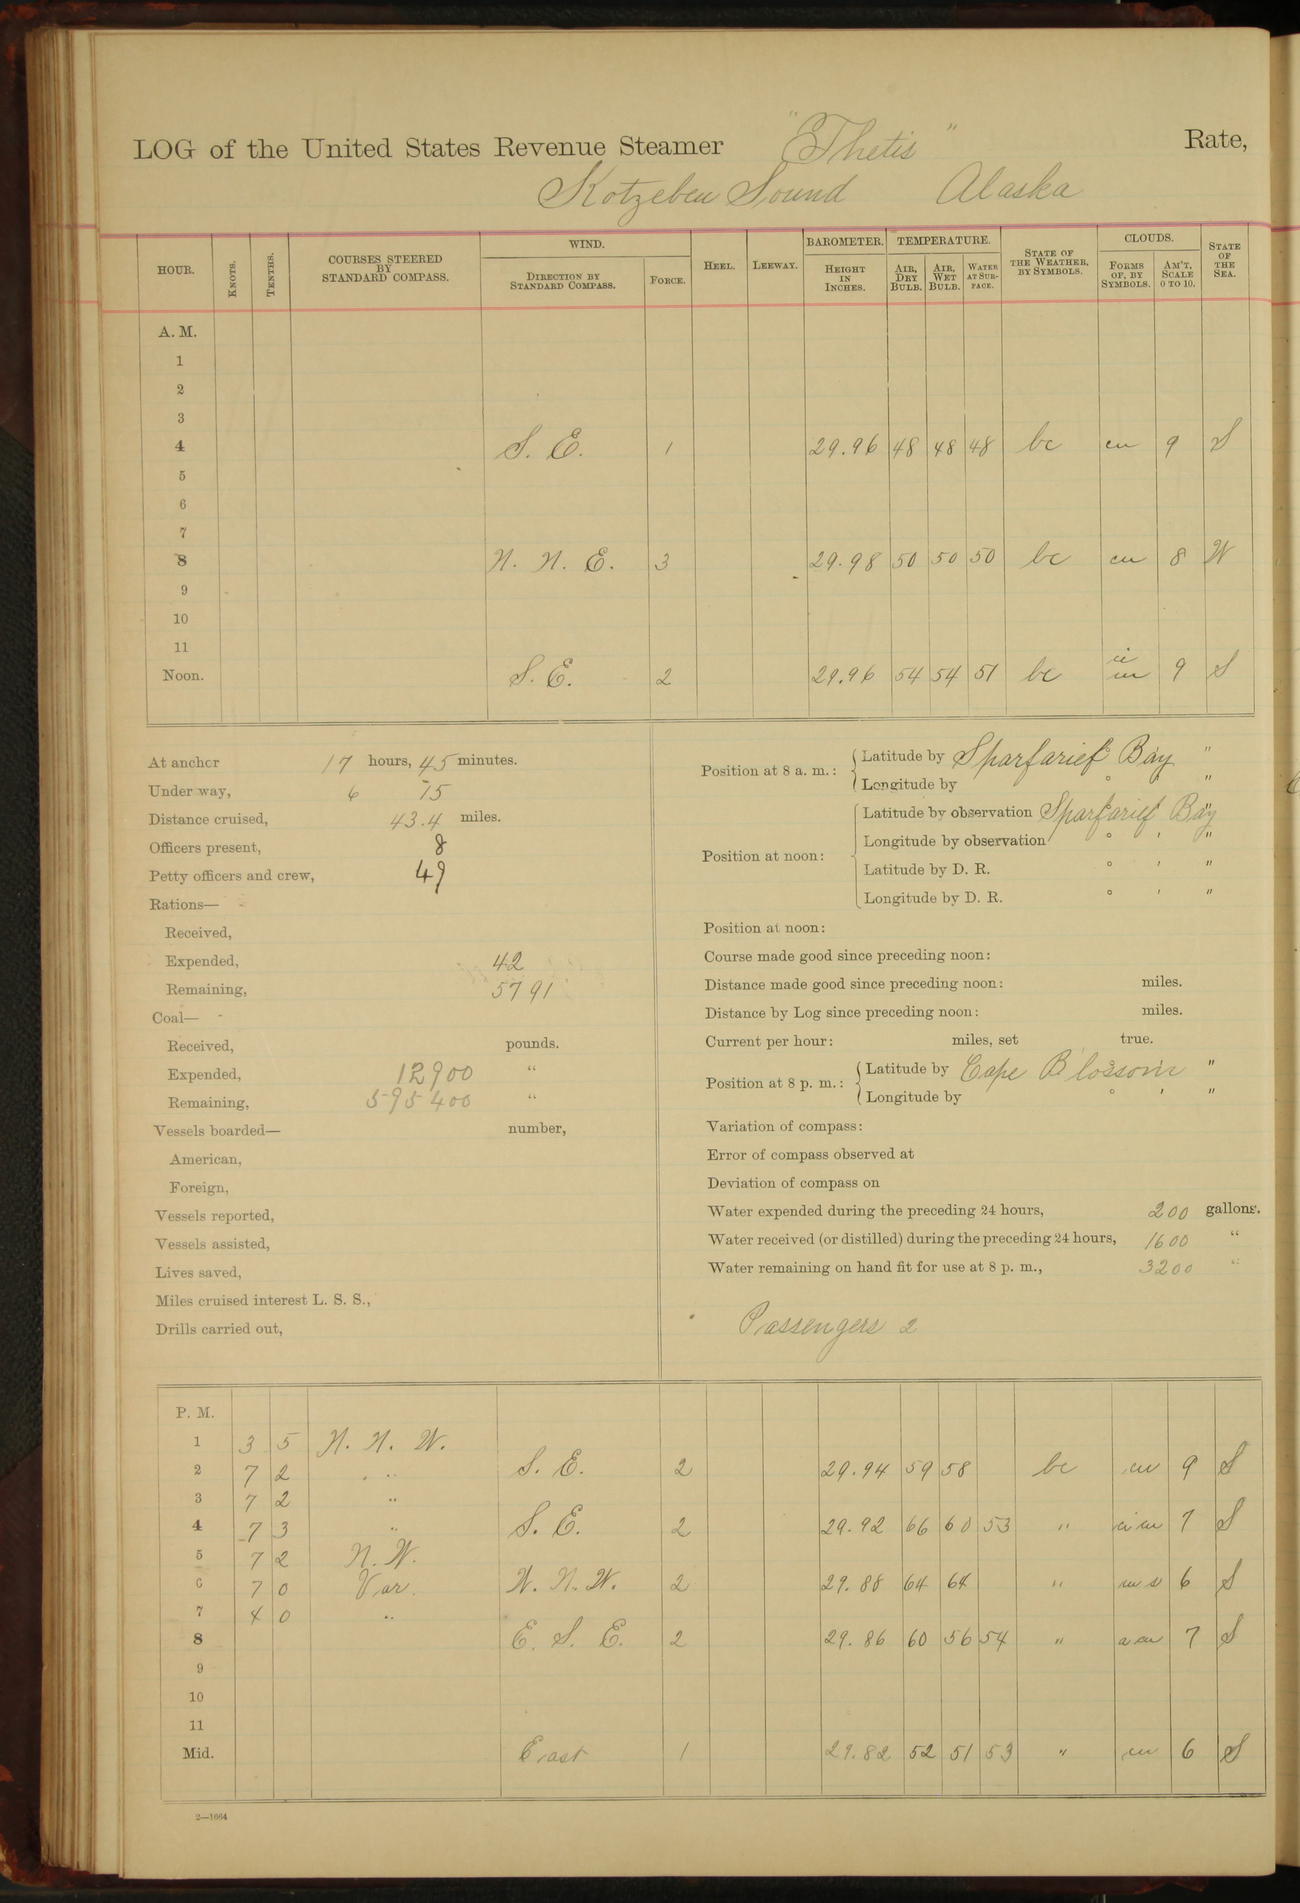 LOG of the United States Revenue Steamer "Thetis" Rate,
Kotzebeu Sound Alaska
HOUR. KNOTS. TENTHS. COURSES STEERED BY STANDARD COMPASS. WIND. DIRECTION BY STANDARD COMPASS. FORCE. HEEL. LEEWAY. BAROMETER. HEIGHT IN INCHES. TEMPERATURE. AIR, DRY BULB. AIR, WET BULB. WATER AT SURFACE. STATE OF THE WEATHER, BY SYMBOLS. CLOUDS. FORMS OF, BY SYMBOLS. AM'T, SCALE 0 TO 10. STATE OF THE SEA.
A. M.
1
2
3
4 S. E. 1 29.96 48 48 48 bc cu 9 S
5
6
7
8 N. N. E. 3 29.98 50 50 50 bc cu 8 W
9
10
11
Noon. S. E. 2 29.96 54 54 51 bc ci cu 9 S
At anchor 17 hours, 45 minutes.
Under way, 6 15
Distance cruised, 43.4 miles.
Officers present, 8
Petty officers and crew, 49
Rations—
Received,
Expended, 42
Remaining, 5791
Coal—
Received, pounds.
Expended, 12900 "
Remaining, 595400 "
Vessels boarded— number,
American,
Foreign,
Vessels reported,
Vessels assisted,
Lives saved,
Miles cruised interest L. S. S.,
Drills carried out,
Position at 8 a. m.: Latitude by Sparfarief Bay "
Longitude by ° ' "
Position at noon: Latitude by observation Sparfarief Bay "
Longitude by observation ° ' "
Latitude by D. R. ° ' "
Longitude by D. R. ° ' "
Position at noon:
Course made good since preceding noon:
Distance made good since preceding noon: miles.
Distance by Log since preceding noon: miles.
Current per hour: miles, set true.
Position at 8 p. m.: Latitude by Cape Blossom "
Longitude by ° ' "
Variation of compass:
Error of compass observed at
Deviation of compass on
Water expended during the preceding 24 hours, 200 gallons.
Water received (or distilled) during the preceding 24 hours, 1600 "
Water remaining on hand fit for use at 8 p. m., 3200 "
Passengers 2
P. M.
1 3 5 N. N. W.
2 7 2 " S. E. 2 29.94 59 58 bc cu 9 S
3 7 2 "
4 7 3 " S. E. 2 29.92 66 60 53 " ci cu 7 S
5 7 2 N. W.
6 7 0 Var. N. N. W. 2 29.88 64 64 " cu s 6 S
7 4 0 "
8 E. S. E. 2 29.86 60 56 54 " cu 7 S
9
10
11
Mid. East 1 29.82 52 51 53 " cu 6 S
2—1664